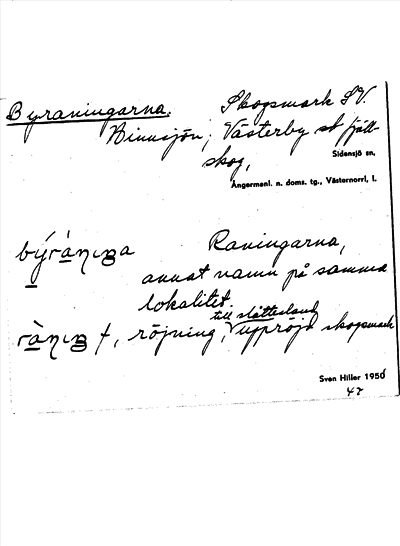 Byraningarna. Skogsmark S.V.
Binnsjön, Västerby st fjäll-
skog,
Sidensjö sn,
Ångermanl. n. doms. tg., Västernorrl. l.
Raningarna,
annat namn på samma
lokalitet.
till slåttesland
f, röjning, uppröjd skogsmark
Sven Hiller 1950
47